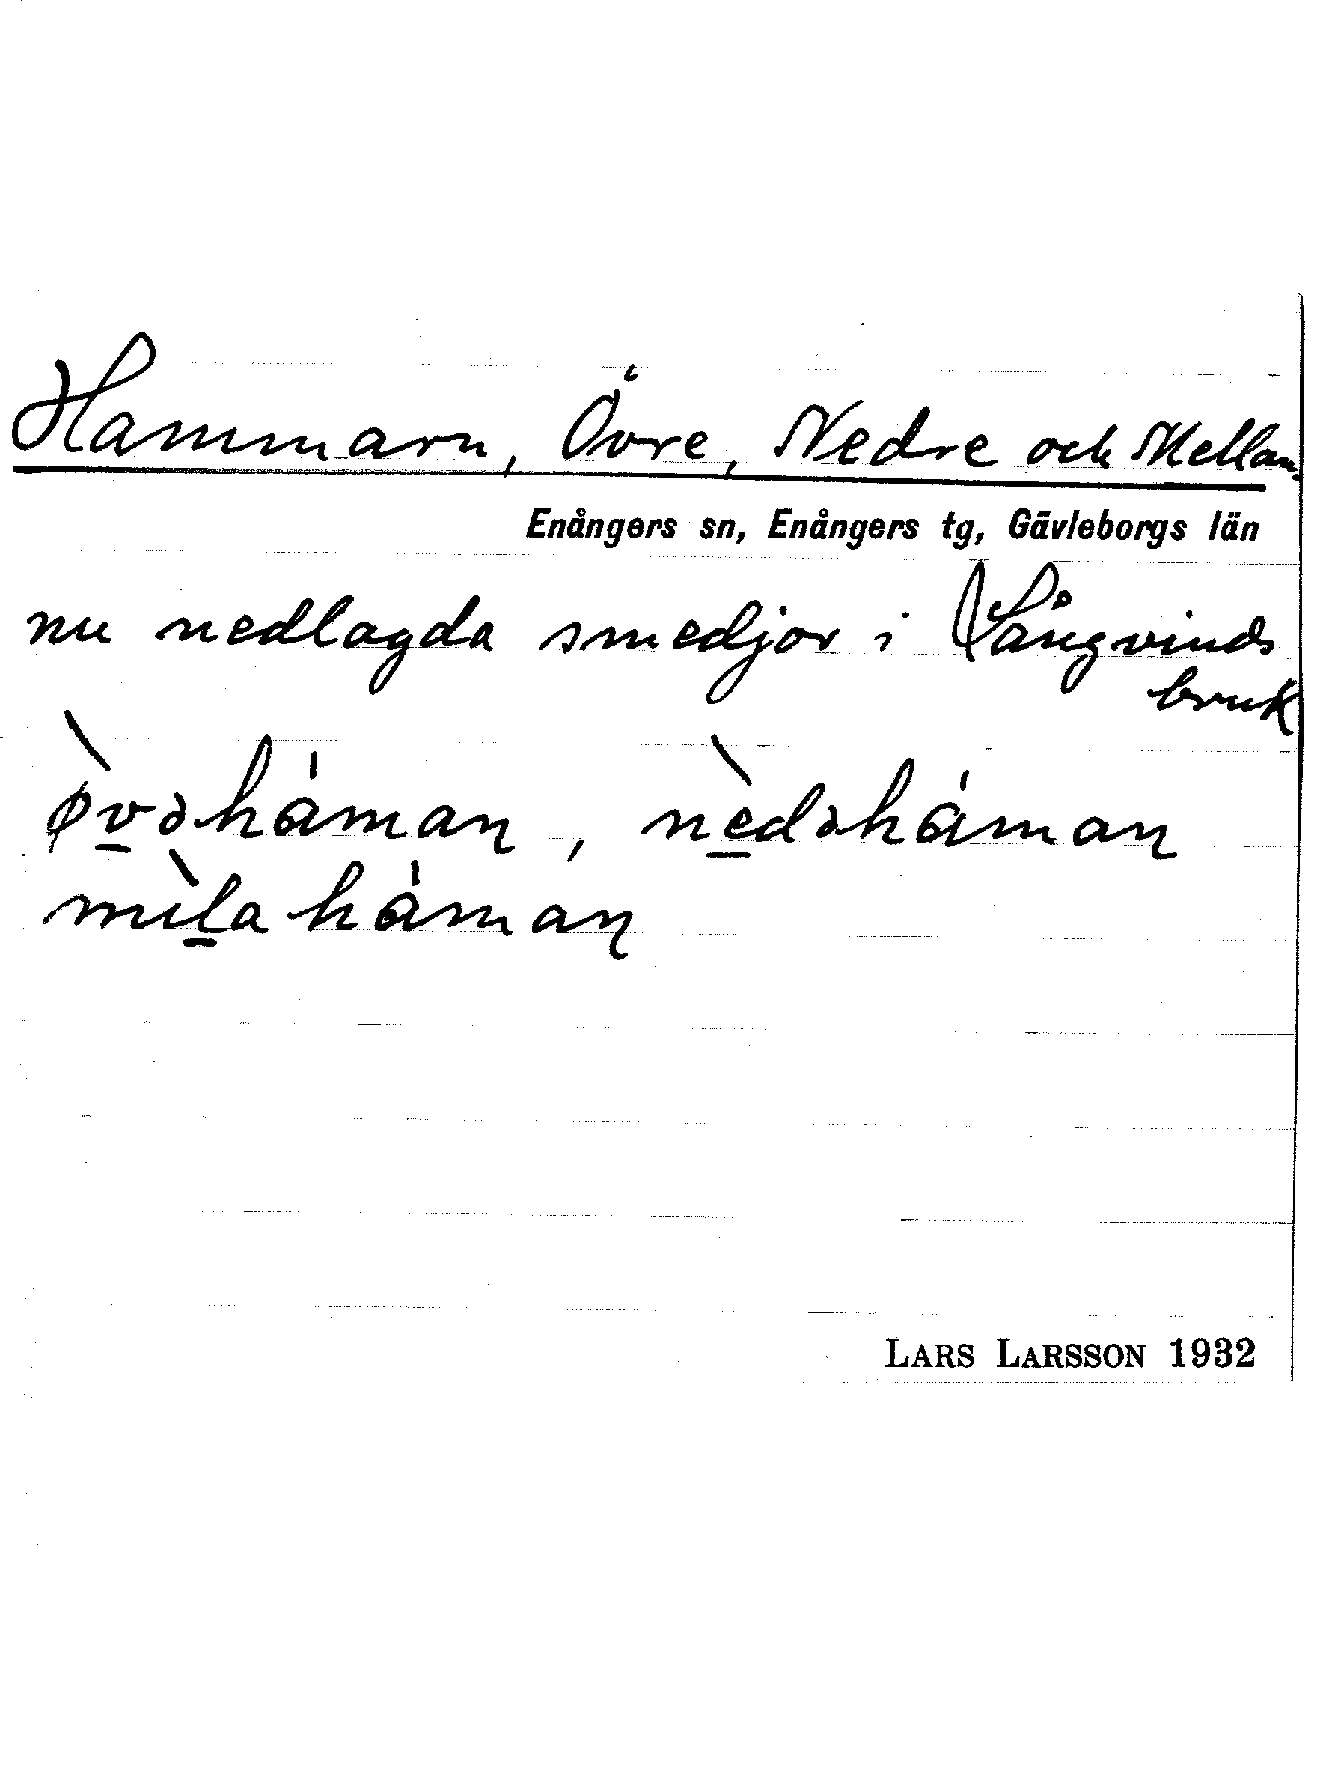 Hammarn, Övre, Nedre och Mellan
Enångers sn, Enångers tg, Gävleborgs län
nu nedlagda smedjor i Långvinds
bruk
ø̀v̲əháman̨, nèd̲əháman̨
mìl̲aháman̨
LARS LARSSON 1932